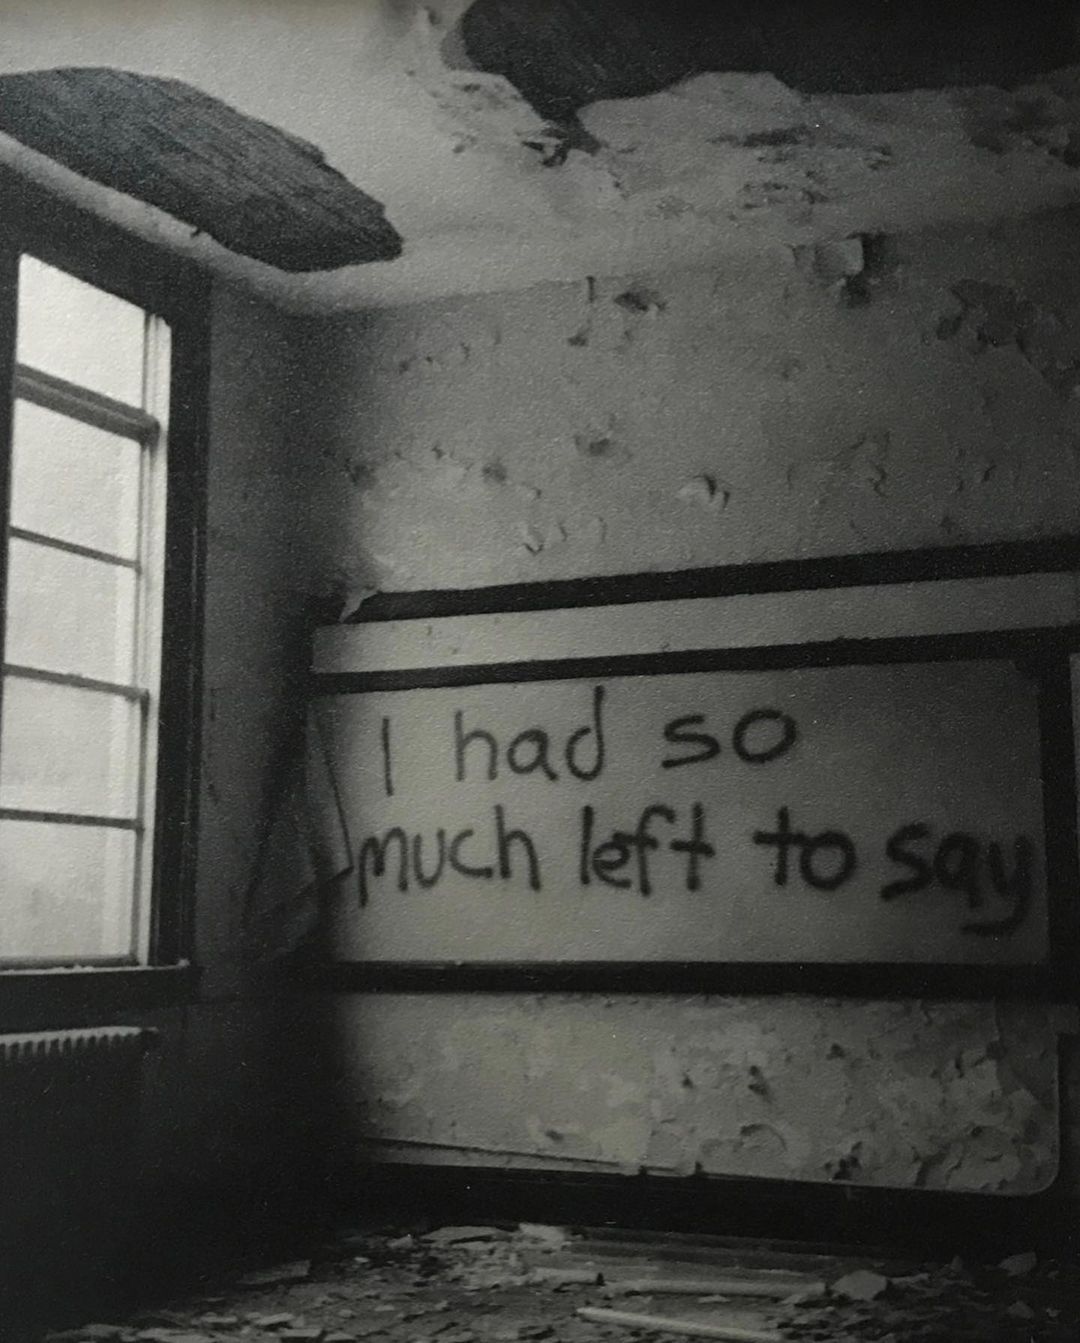 I had so
much left to say